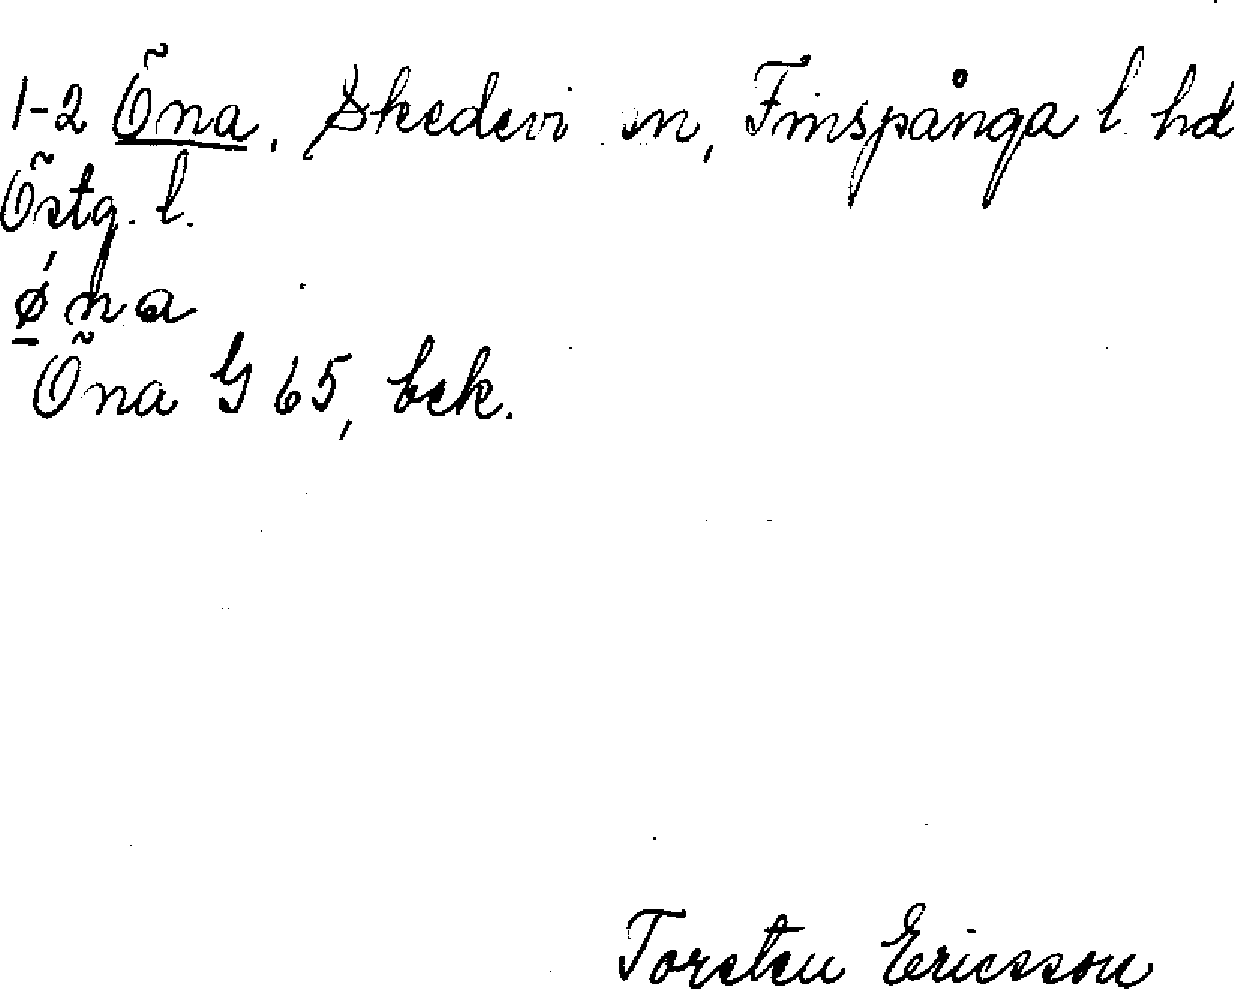 1-2 Õna. Skedevi sn, Finspånga l. hd
Östg. l.
ǿna
Õna G 65, bek.
Torsten Ericsson